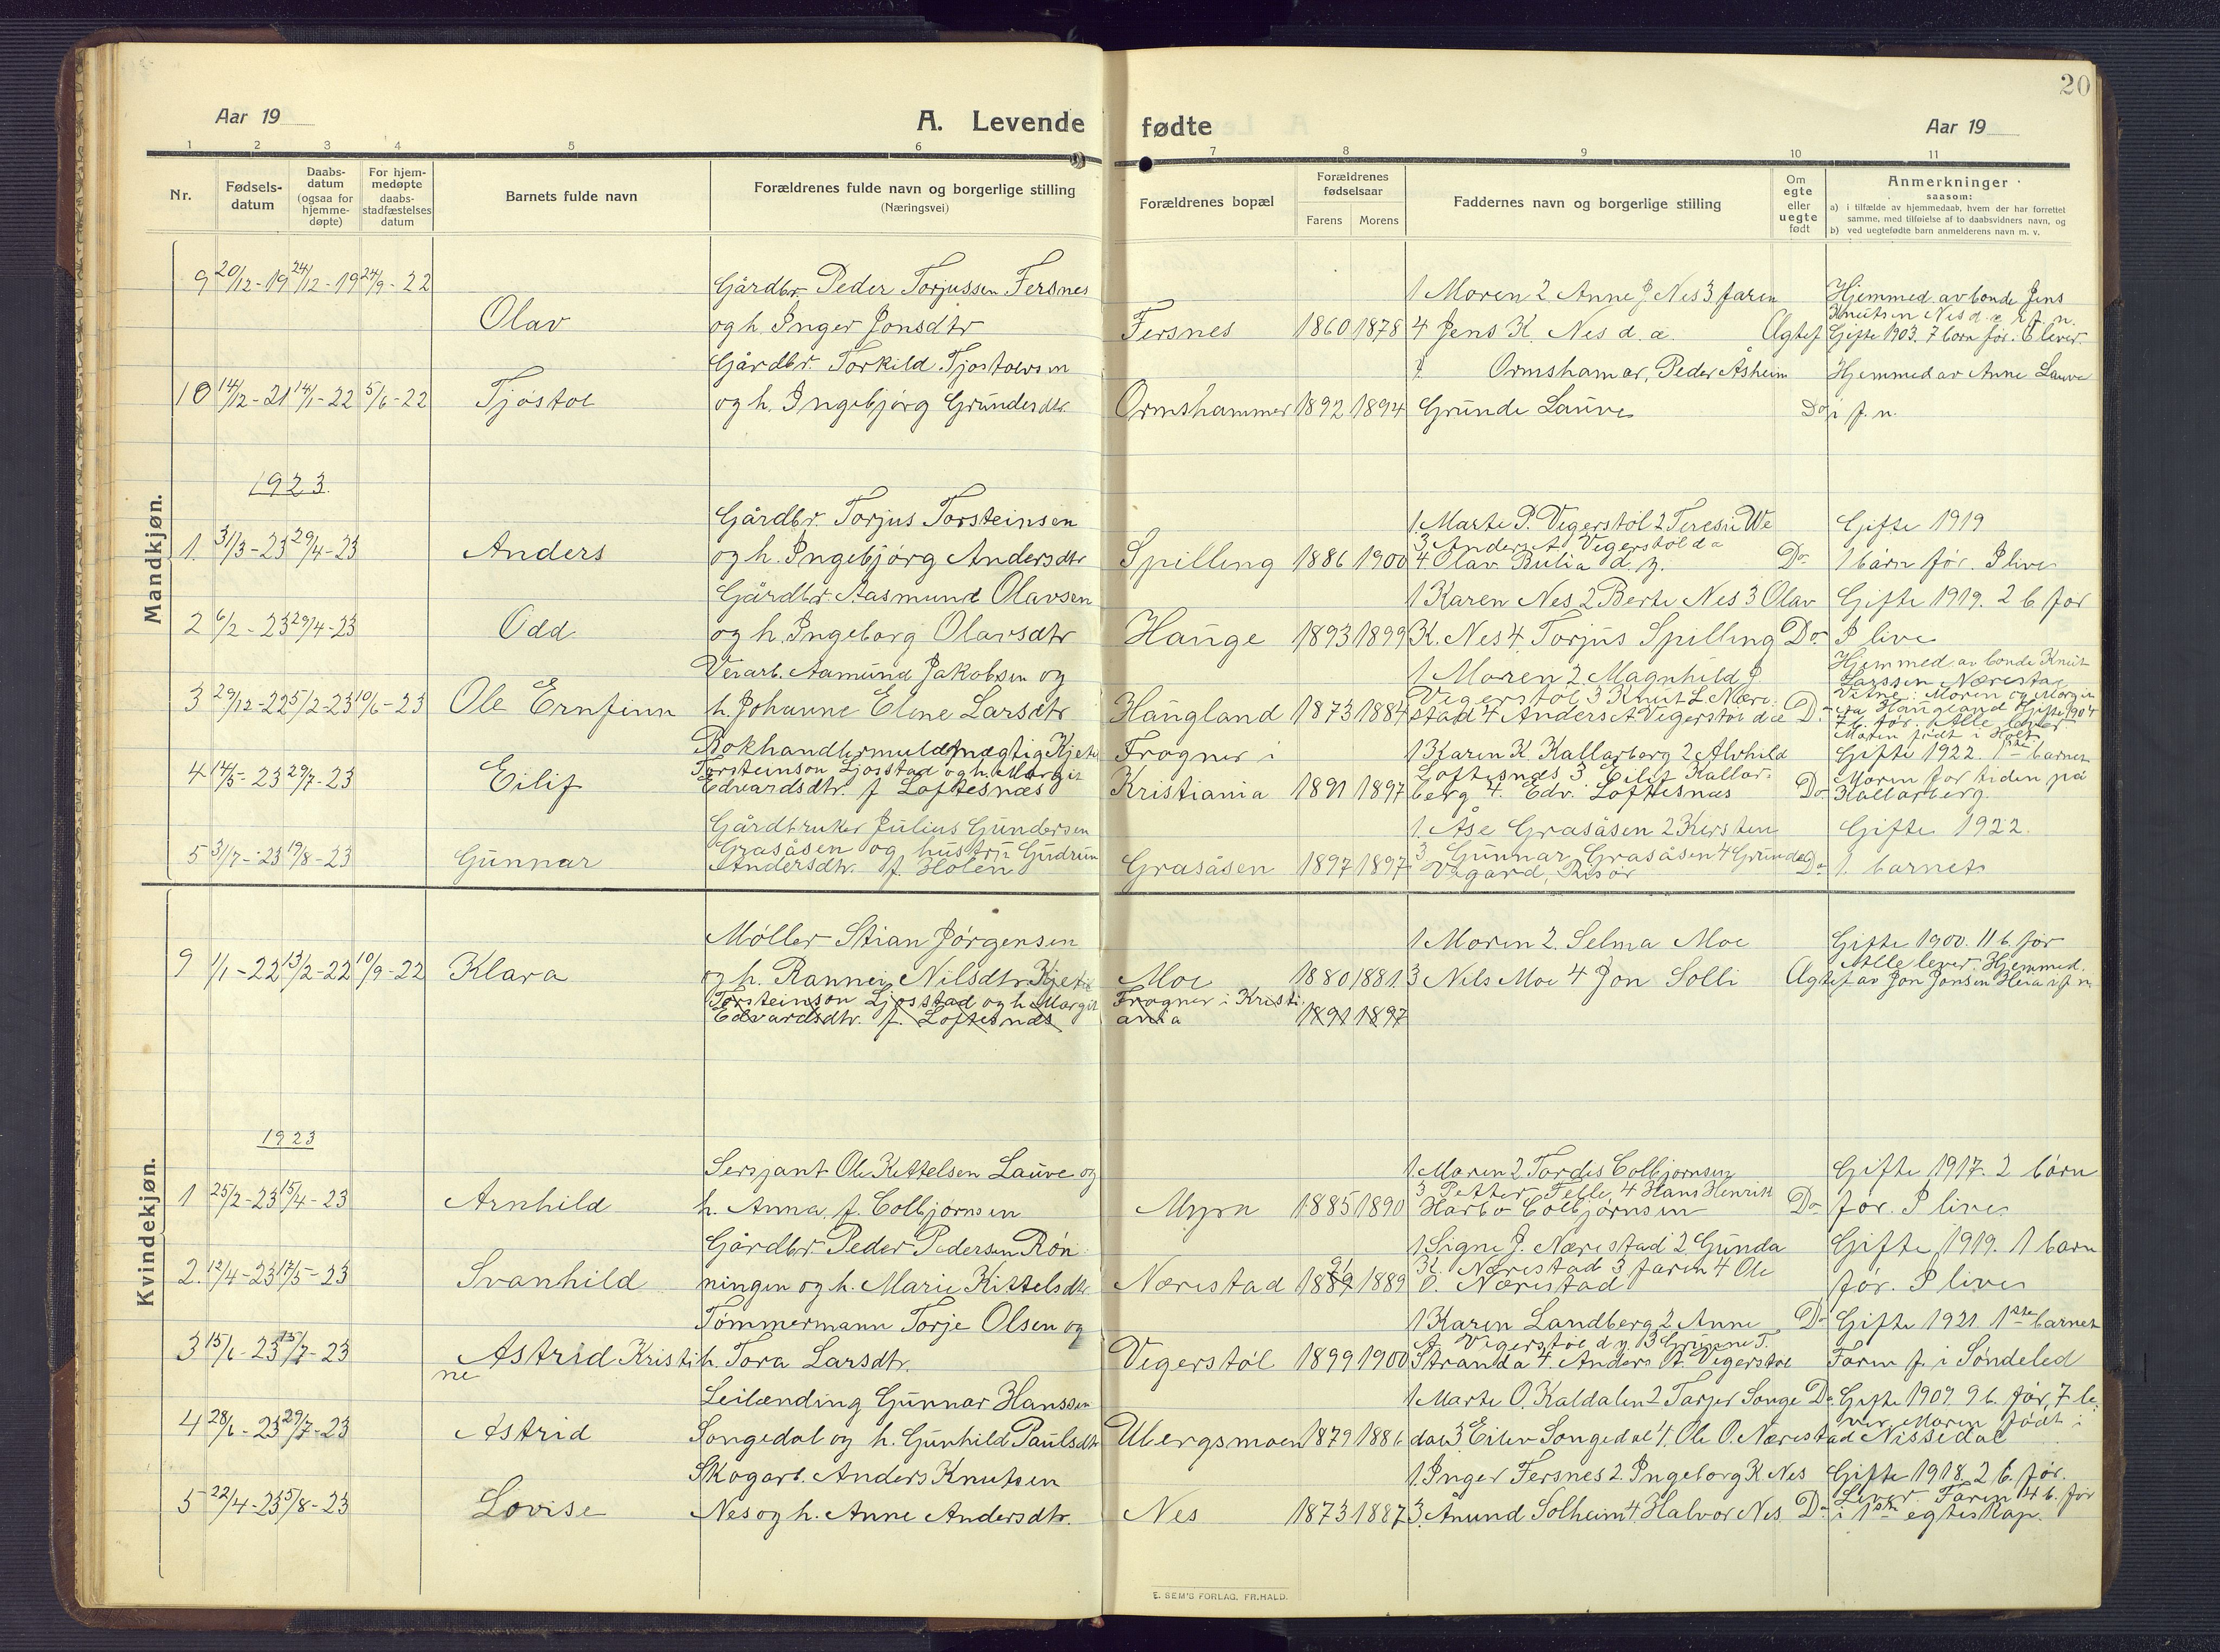 20
Aar 19
A. Levende
fødte
Aar 19
1 2 3 4 5 6 7 8 9 10 11
Nr.
Fødsels-
datum
Daabs-
datum
(ogsaa for
hjemme-
døpte)
For hjem-
medøpte
daabs-
stadfæstelses
datum
Barnets fulde navn
Forældrenes fulde navn og borgerlige stilling
(Næringsvei)
Forældrenes bopæl
Forældrenes
fødselsaar
Farens Morens
Faddernes navn og borgerlige stilling
Om
egte
eller
uegte
født
Anmerkninger
saasom:
a) i tilfælde av hjemmedaab, hvem der har forrettet
samme, med tilføielse af to daabsvidners navn, og
b) ved uegtefødte barn anmelderens navn m. v.
Mandkjøn.
9 20/12-19 24/12-19 24/9-22
Olav
Gårdbr. Peder Torjussen Fersnes
og h. Inger Jonsdtr
Fersnes 1860 1878
1 Moren 2 Anne J Nes 3 faren
4 Jens K. Nes d. æ.
Ægtef
Hjemmed av bonde Jens
Knutsen Nes d. æ i f. n.
Gifte 1903. 7 born før. 6 lever.
10 14/12-21 14/1-22 5/6-22
Tjøstol
Gårdbr. Torkild Tjostolvsen
og h. Ingebjørg Grundesdtr.
Ormshammer 1892 1894
Ormshamar, Peder Åsheim
Grunde Lauve
Do
Hjemmed av Anne Lauve
i f. n.
1923.
1. 31/3-23 29/4-23
Anders
Gårdbr. Torjus Torsteinsen
og h. Ingebjørg Andersdtr
Spilling 1886 1900
1. Marte P. Vegerstøl 2 Teresie We
3 Anders A Vegerstøl d æ
4 Olav Bulia d. y.
Do
Gifte 1919
1 barn før. I live
2 6/2-23 29/4-23
Odd
Gårdbr. Aasmund Olavsen
og h. Ingeborg Olavsdtr
Hauge 1893 1899
1 Karen Nes 2 Berte Nes 3 Olav
K. Nes 4. Torjus Spilling
Do
Gifte 1919. 2 b. før
I live
3 29/12-22 5/2-23 10/6-23
Ole Ernfinn
Veiarb. Aamund Jakobsen og
h. Johanne Elene Larsdtr
Haugland 1873 1884
1 Moren 2 Magnhild J
Vegerstøl 3 Knut L Næres-
stad 4 Anders A Vegerstøl d æ
Do
Hjemmed. av bonde Knut
Larssen Nærestad
Vitne: Moren og Margit
Haugland Gifte 1904
7 b. før. Alle lever
Moren født i Holt
4 14/5-23 29/7-23
Eilif
Bokhandlermuldfmægtig Kjetil
Torsteinson Ljosstad og h. Margit
Edvardsdtr. f Loftesnæs
Frogner i
Kristiania 1891 1897
1 Karen K. Kallarberg 2 Alvhild
Loftesnæs 3 Eilef Kallar-
berg 4. Edv. Loftesnæs
Do
Gifte 1922. 1ste barnet
Moren for tiden på
Kallarberg.
5 31/7-23 19/8-23
Gunnar
Gårdbruker Julius Gundersen
Grasåsen og hustru Gudrun
Andersdtr. f. Holen
Grasåsen 1897 1897
1. Åse Grasåsen 2 Kirsten
3 Gunnar Grasåsen 4 Grunde
Vagard, Risør
Do
Gifte 1922.
1. barnet
Kvindekjøn.
9 1/1-22 13/2-22 10/9-22
Klara
Møller Stian Jørgensen
og h. Rannei Nilsdtr. Kjetil
Torsteinson Ljosstad og h. Margit
Edvardsdtr. f. Loftesnæs
Moe 1880 1881
Frogner i Kristi
ania 1891 1897
1 Moren 2. Selma Moe
3 Nils Moe 4 Jon Solli
Ægtef
Gifte 1900. 11 b. før
Alle lever. Hjemmed.
av Jon Jonsen Heia i f n
1923
1 25/2-23 15/4-23
Arnhild
Sersjant Ole Kittelsen Lauve og
h. Anna f. Colbjørnsen
Myra 1885 1890
1. Moren 2 Tordis Colbjørnsen
3 Petter Felle, 4 Hans Henrik
Harbo Colbjørnsen
Do
Gifte 1917. 2 børn
før. I live
2. 12/4-23 17/5-23
Svanhild
Gårdbr. Peder Pedersen Røn-
ningen og h. Marie Kittelsdtr.
Nærestad 1889 1889
91
1 Signe J. Nærestad 2 Gunda
K. Nærestad 3 faren 4 Ole
O. Nærestad
Do
Gifte 1919. 1 barn
før. I live
3 15/6-23 15/7-23
Astrid Kristi
ne
Tømmermann Torje Olsen og
h. Tora Larsdtr.
Vegerstøl 1899 1900
1 Karen Landberg 2 Anne
A. Vegerstøl d y. 3 Grunne T.
Stranda 4. Anders A. Vegerstøl
Gifte 1921. 1ste barnet
Faren f. i Søndeled
4 28/6-23 29/7-23
Astrid
Leilænding Gunnar Hanssen
Songedal og h. Gunhild Paulsdtr
Ubergsmoen 1879 1886
1 Marte O. Kaldalen 2 Tarjer Songe
dal 3. Eilev Songedal 4. Ole O. Nærestad
Do
Gifte 1909. 9 b. før, 7 le
ver. Moren født i
Nissedal
5 22/4-23 5/8-23
Lovise
Skogarb. Anders Knutsen
Nes og h. Anne Andersdtr.
Nes 1873 1887
1. Inger Fersnes 2. Ingeborg K Nes
3. Ånund Solheim 4. Halvor Nes
Do
Gifte 1918. 2 b. før.
Lever. Faren 4 b. før
i 1ste egteskap.
E. SEM'S FORLAG. FR.HALD.